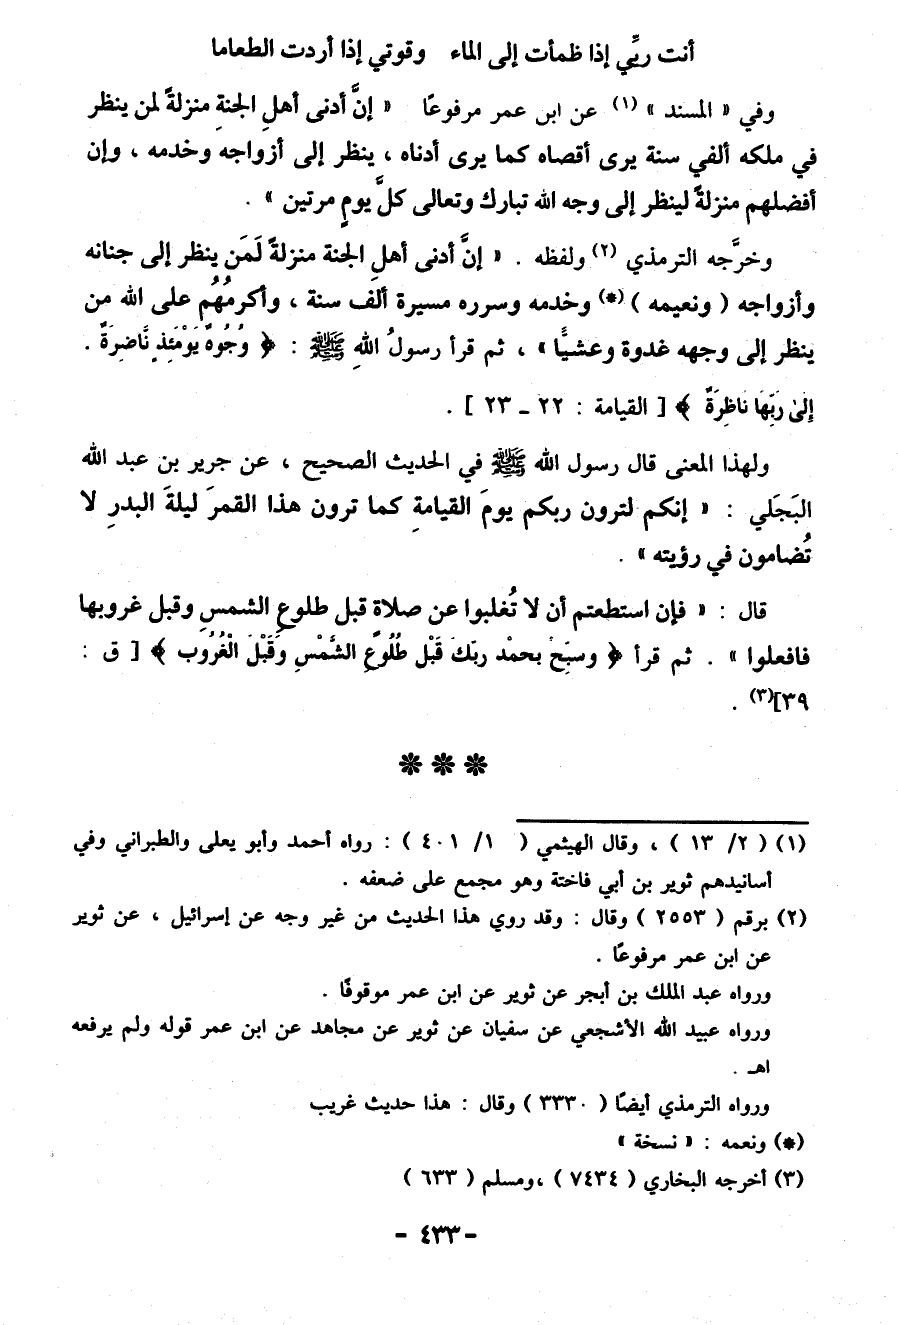 أنت ربِّي إذا ظمأت إلى الماء وقوتي إذا أردت الطعاما
وفي « المسند » (١) عن ابن عمر مرفوعًا « إنَّ أدنى أهلِ الجنةِ منزلةً لمن ينظر
في ملكه ألفي سنة يرى أقصاه كما يرى أدناه ، ينظر إلى أزواجه وخدمه ، وإن
أفضلهم منزلةً لينظر إلى وجه الله تبارك وتعالى كلَّ يومٍ مرتين » .
وخرَّجه الترمذي (٢) ولفظه . « إنَّ أدنى أهلِ الجنة منزلةً لَمَن ينظر إلى جنانه
وأزواجه ( ونعيمه ) (*) وخدمه وسرره مسيرة ألف سنة ، وأكرمُهُم على الله من
ينظر إلى وجهه غدوة وعشيًّا » ، ثم قرأ رسولُ اللهِ ﷺ : ﴿ وُجُوهٌ يَوْمَئِذٍ نَّاضِرَةٌ .
إِلَىٰ رَبِّهَا نَاظِرَةٌ ﴾ [ القيامة : ٢٢ ـ ٢٣ ] .
ولهذا المعنى قال رسول الله ﷺ في الحديث الصحيح ، عن جرير بن عبد الله
البَجَلي : « إنكم لترون ربكم يومَ القيامةِ كما ترون هذا القمرَ ليلةَ البدرِ لا
تُضامون في رؤيته » .
قال : « فإن استطعتم أن لا تُغلبوا عن صلاةٍ قبل طلوعِ الشمسِ وقبل غروبها
فافعلوا » . ثم قرأ ﴿ وسبِّحْ بحمْد ربِّكَ قَبْل طُلُوعِ الشَّمْسِ وقَبْلَ الْغُرُوب ﴾ [ ق :
٣٩](٣) .
* * *
(١) ( ٢/ ١٣ ) ، وقال الهيثمي ( ١/ ٤٠١ ) : رواه أحمد وأبو يعلى والطبراني وفي
أسانيدهم ثوير بن أبي فاختة وهو مجمع على ضعفه .
(٢) برقم ( ٢٥٥٣ ) وقال : وقد روي هذا الحديث من غير وجه عن إسرائيل ، عن ثوير
عن ابن عمر مرفوعًا .
ورواه عبد الملك بن أبجر عن ثوير عن ابن عمر موقوفًا .
ورواه عبيد الله الأشجعي عن سفيان عن ثوير عن مجاهد عن ابن عمر قوله ولم يرفعه
اهـ .
ورواه الترمذي أيضًا ( ٣٣٣٠ ) وقال : هذا حديث غريب
(*) ونعمه : « نسخة »
(٣) أخرجه البخاري ( ٧٤٣٤ ) ،ومسلم ( ٦٣٣ )
- ٤٣٣ -